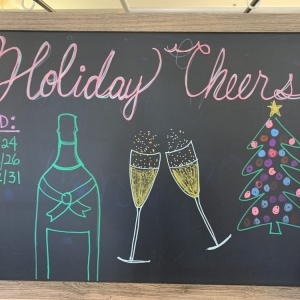 Holiday Cheers
D:
24
/26
/31